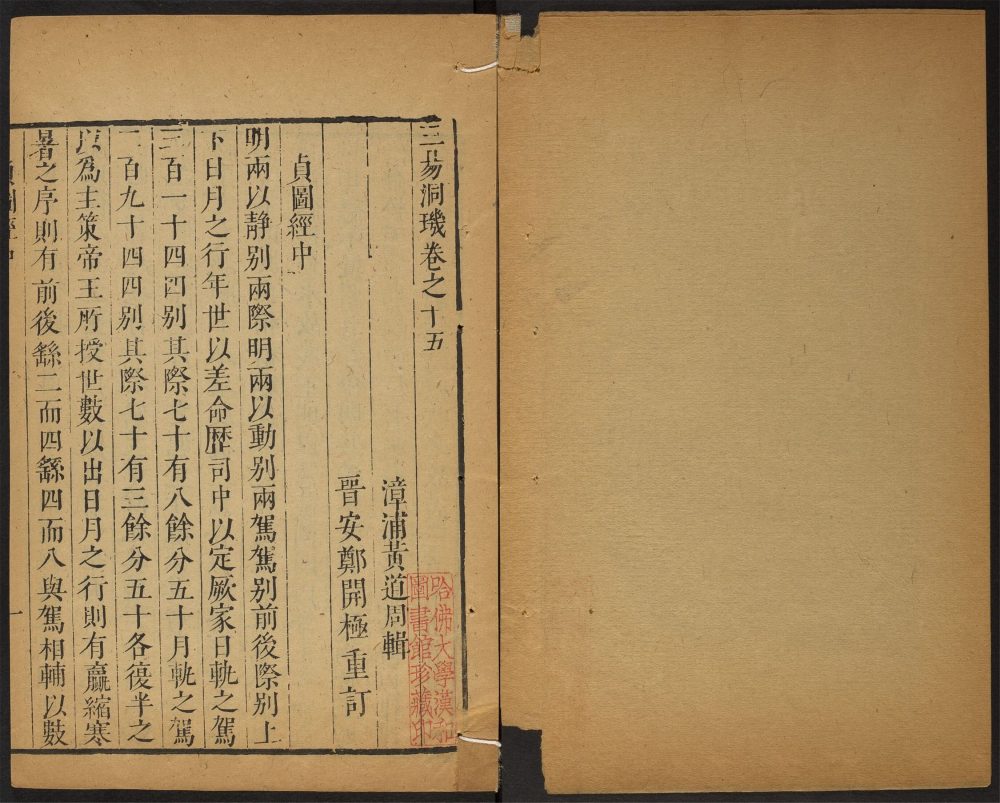 三易洞璣卷之十五
漳浦黃道周輯
晉安鄭開極重訂
貞圖經中
明兩以靜別兩際明兩以動別兩駕駕別前後際別上
下日月之行年世以差命曆司中以定厥家日軌之駕
三百一十四四别其際七十有八餘分五十月軌之駕
二百九十四四别其際七十有三餘分五十各復半之
以爲主策帝王所授世數以出日月之行則有贏縮寒
暑之序則有前後繇二而四繇四而八與駕相輔以數
貞圖經中
一
哈佛大學漢和
圖書館珍藏印